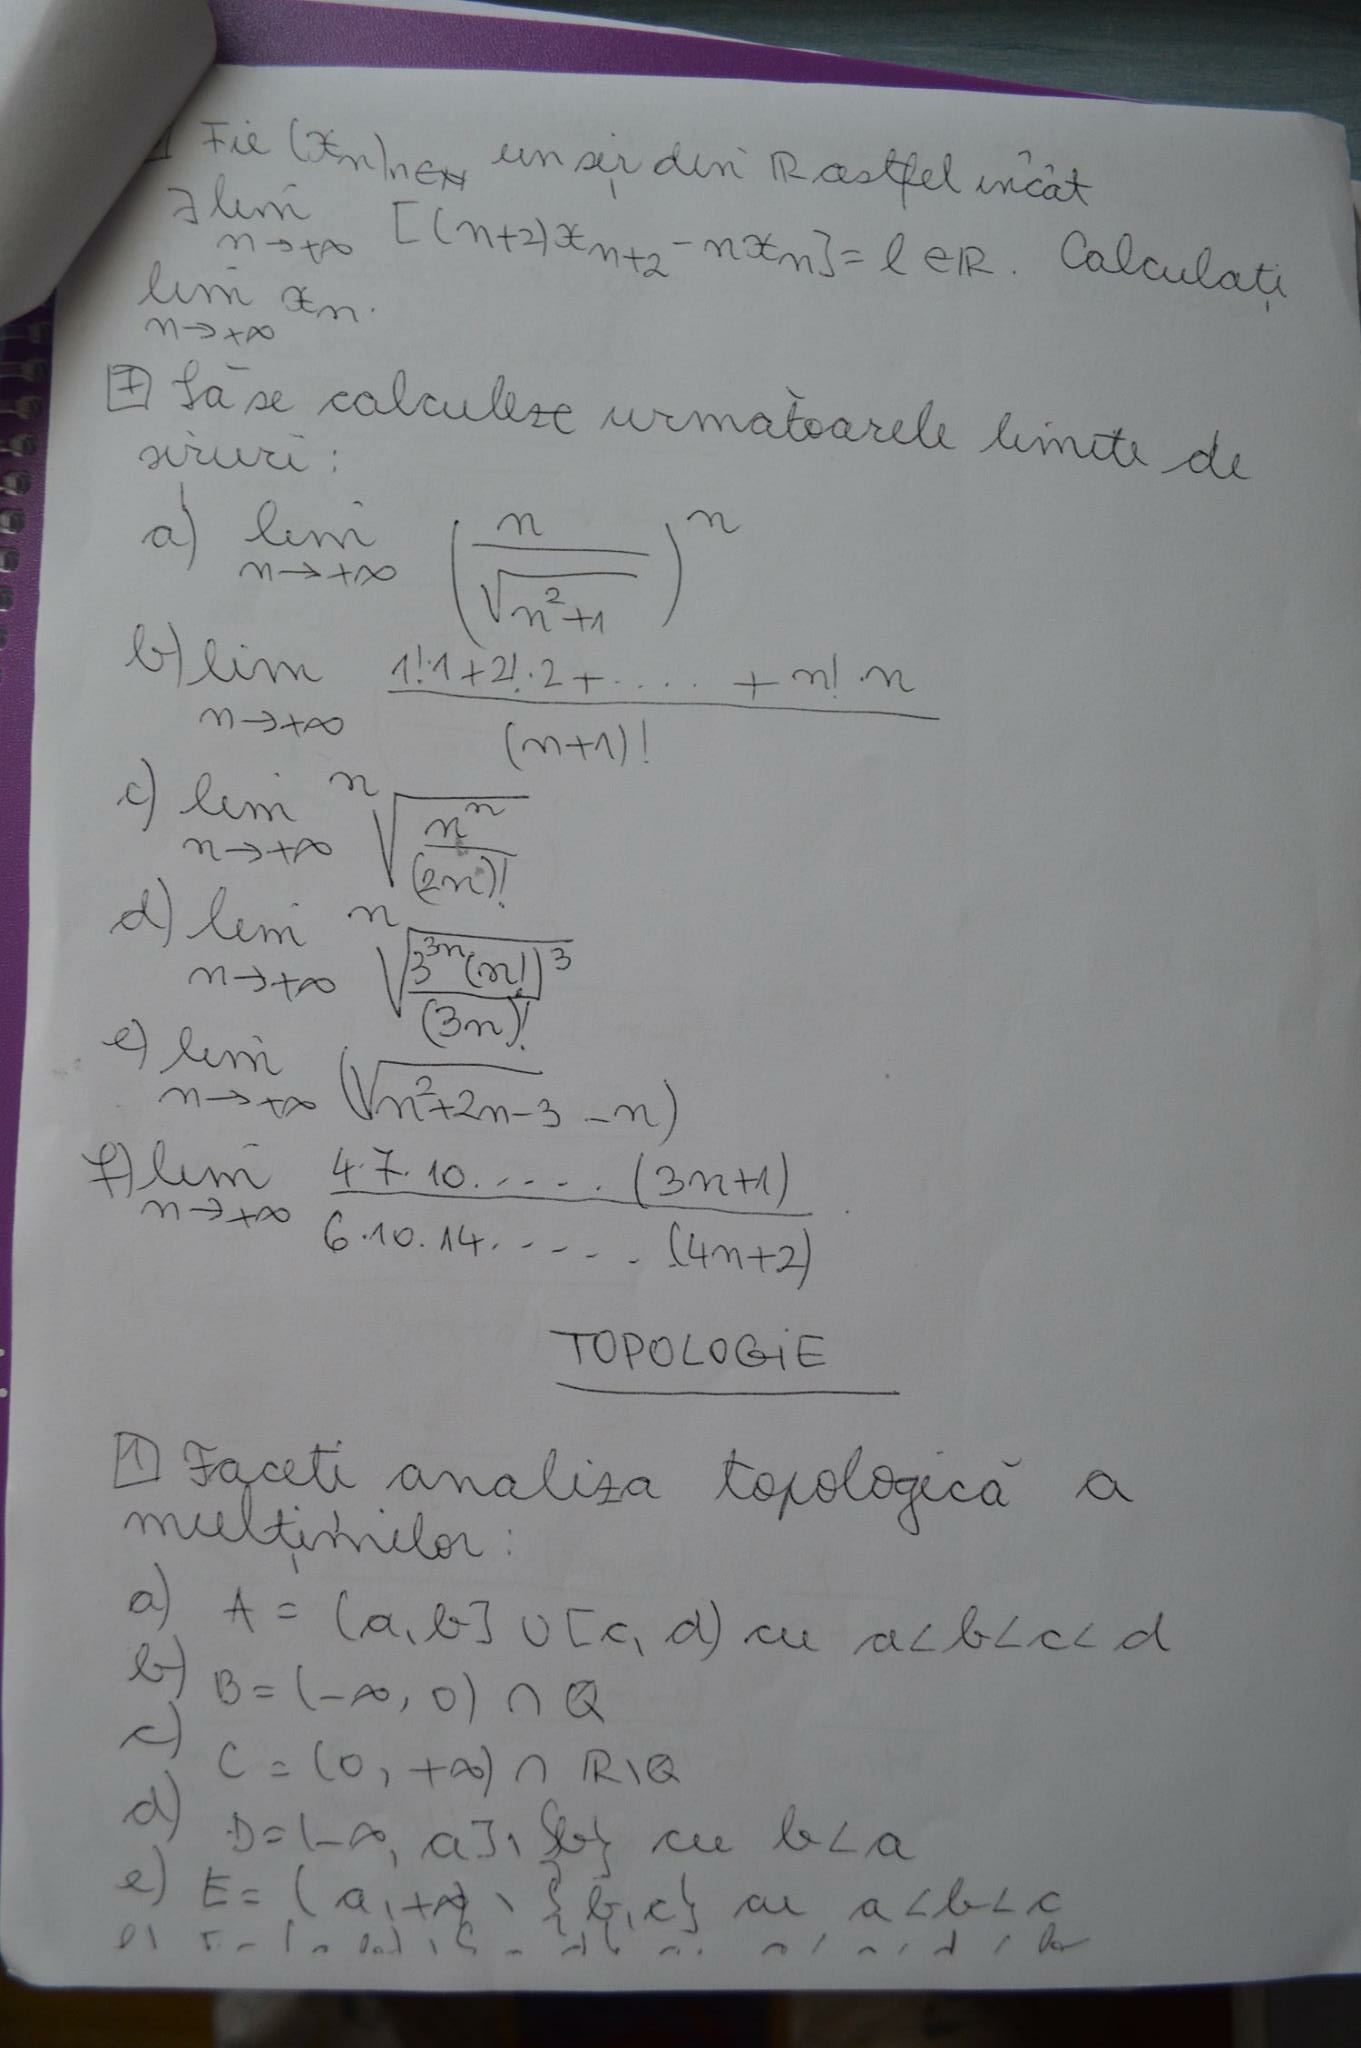 Fie (xn)n∈N un șir din R astfel încât
∃ lim n→+∞ [(n+2)xn+2 - nxn] = l ∈ R. Calculați
lim n→+∞ xn.
7 Să se calculeze următoarele limite de
siruri:
a) lim n→+∞ (n/√(n²+1))^n
b) lim n→+∞ (1!·1+2!·2+.....+n!·n)/(n+1)!
c) lim n→+∞ ⁿ√(n^n/(2n)!)
d) lim n→+∞ ⁿ√(3^(3n)(n!)³/(3n)!)
e) lim n→+∞ (√(n²+2n-3) - n)
f) lim n→+∞ (4·7·10.....(3n+1))/(6·10·14.....(4n+2))
TOPOLOGIE
1 Faceti analiza topologică a
mulțimilor:
a) A = (a, b] ∪ [c, d) cu a<b<c<d
b) B = (-∞, 0) ∩ Q
c) C = (0, +∞) ∩ R\Q
d) D = (-∞, a] \ {b} cu b<a
e) E = (a, +∞) \ {b, c} cu a<b<c